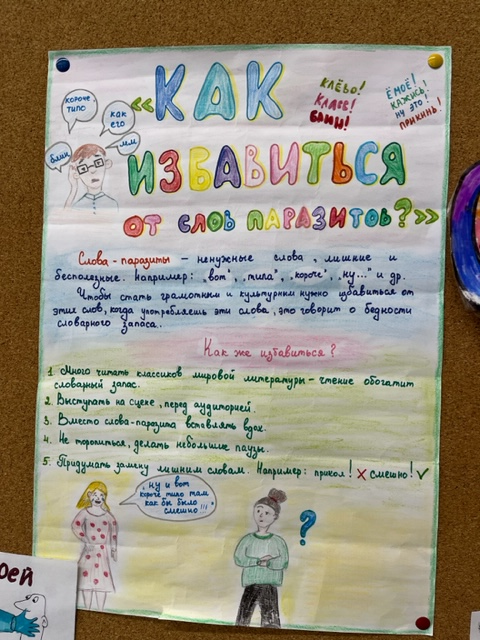 «КАК
ИЗБАВИТЬСЯ
ОТ СЛОВ ПАРАЗИТОВ?»
КЛЁВО!
КЛАСС!
БЛИН!
ЁМОЁ!
КАЖИСЬ!
НУ ЭТО!
ПРИКИНЬ!
короче,
типо
как
его
блин
мм
Слова-паразиты – ненужные слова, лишние и
бесполезные. Например: „вот", „типа", „короче", „ну..." и др.
Чтобы стать грамотным и культурным нужно избавиться от
этих слов, когда употребляешь эти слова, это говорит о бедности
словарного запаса.
Как же избавиться?
1. Много читать классиков мировой литературы – чтение обогатит
словарный запас.
2. Выступать на сцене, перед аудиторией.
3. Вместо слова-паразита вставлять вдох.
4. Не торопиться, делать небольшие паузы.
5. Придумать замену лишним словам. Например: прикол! ✗ смешно! ✓
ну и вот
короче типо там
как бы было
смешно!!!
?
рей